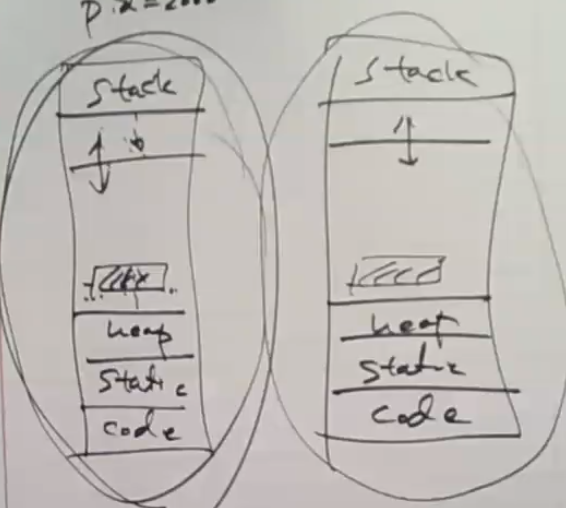 Stack
heap
Static
code
Stack
heap
Static
code